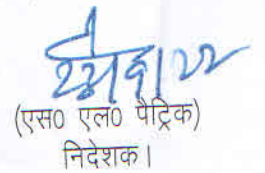 (एस० एल० पैट्रिक)
निदेशक।